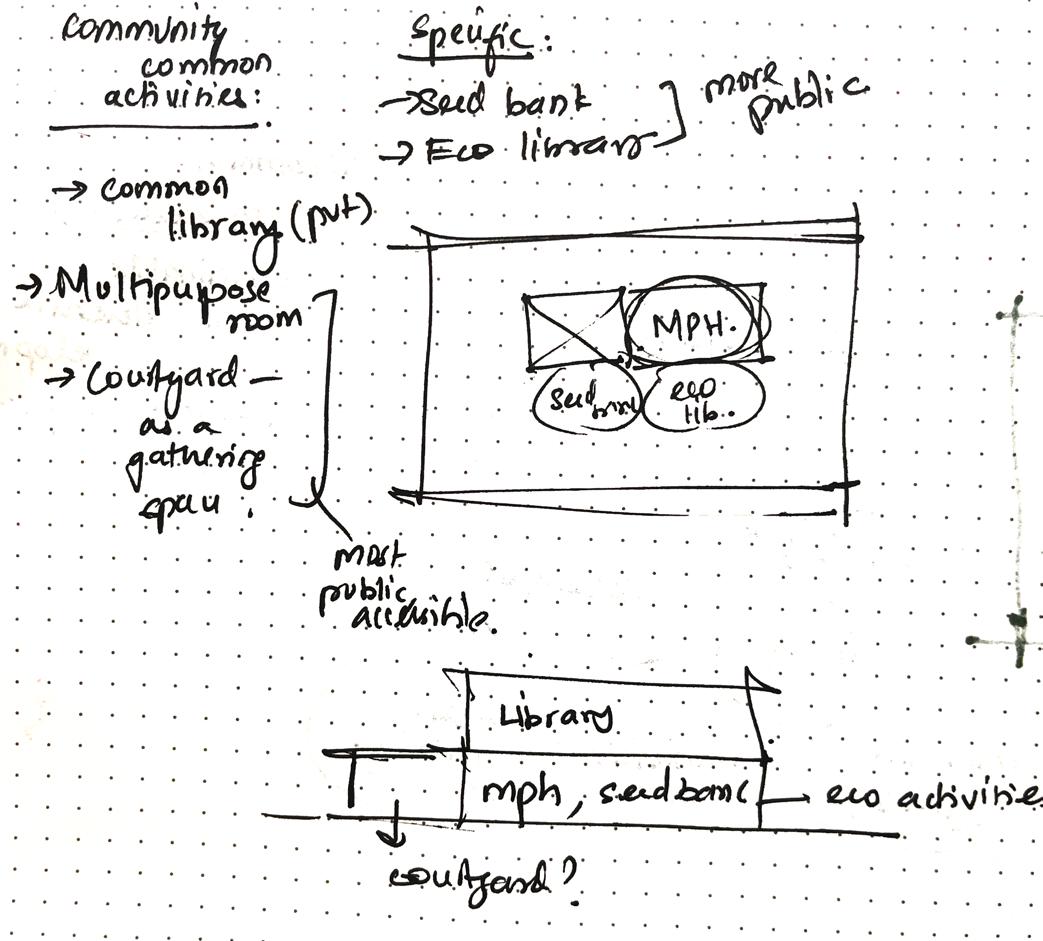 community
common
activities:
→ common
library (pvt)
→ Multipurpose
room
→ Courtyard —
as a
gathering
space:
most
public
accessible.
Specific:
→ seed bank
→ Eco library
more
public
MPH.
seed bank
eco
lib..
Library
mph, seed bank → eco activities
courtyard?